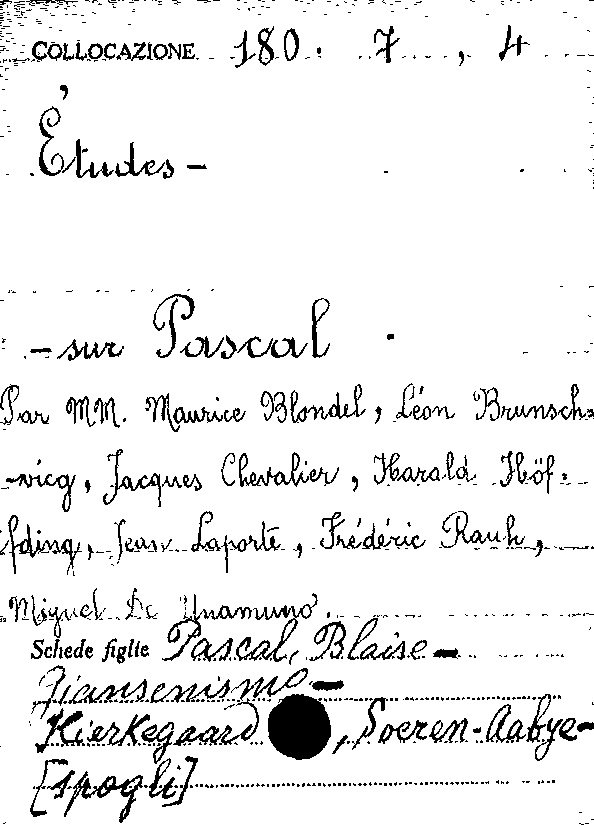 COLLOCAZIONE 180. 7, 4
Études -
- sur Pascal.
Par MM. Maurice Blondel, Léon Brunsch=
-wicg, Jacques Chevalier, Harald Höf=
fding, Jean Laporte, Frédéric Rauh,
Miguel De Unamuno.
Schede figlie Pascal, Blaise -
Giansenismo -
Kierkegaard , Soeren-Aabye-
[spogli]